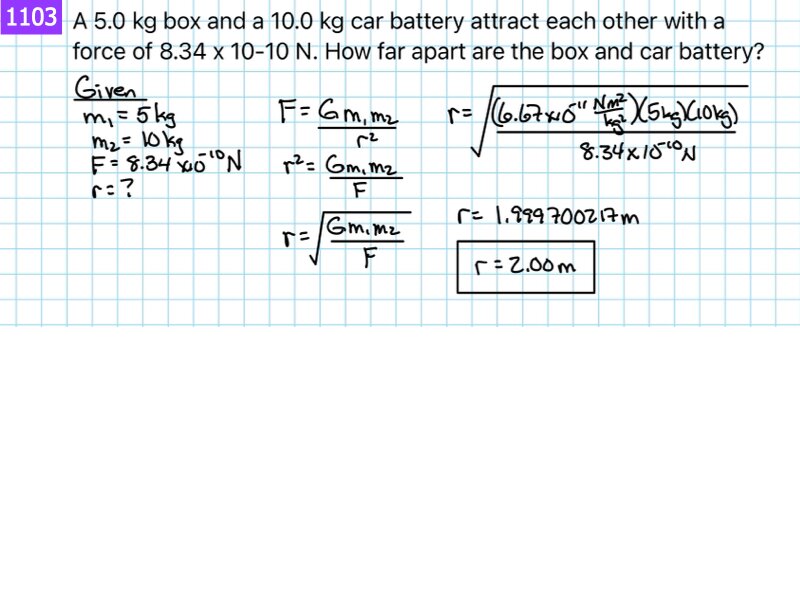 1103 A 5.0 kg box and a 10.0 kg car battery attract each other with a
force of 8.34 x 10-10 N. How far apart are the box and car battery?
Given
m₁ = 5 kg
m₂ = 10 kg
F = 8.34 x10⁻¹⁰ N
r = ?
F = Gm₁m₂ / r²
r² = Gm₁m₂ / F
r = √(Gm₁m₂ / F)
r = √((6.67x10⁻¹¹ Nm²/kg²)(5kg)(10kg) / 8.34x10⁻¹⁰N)
r = 1.999700217m
r = 2.00m